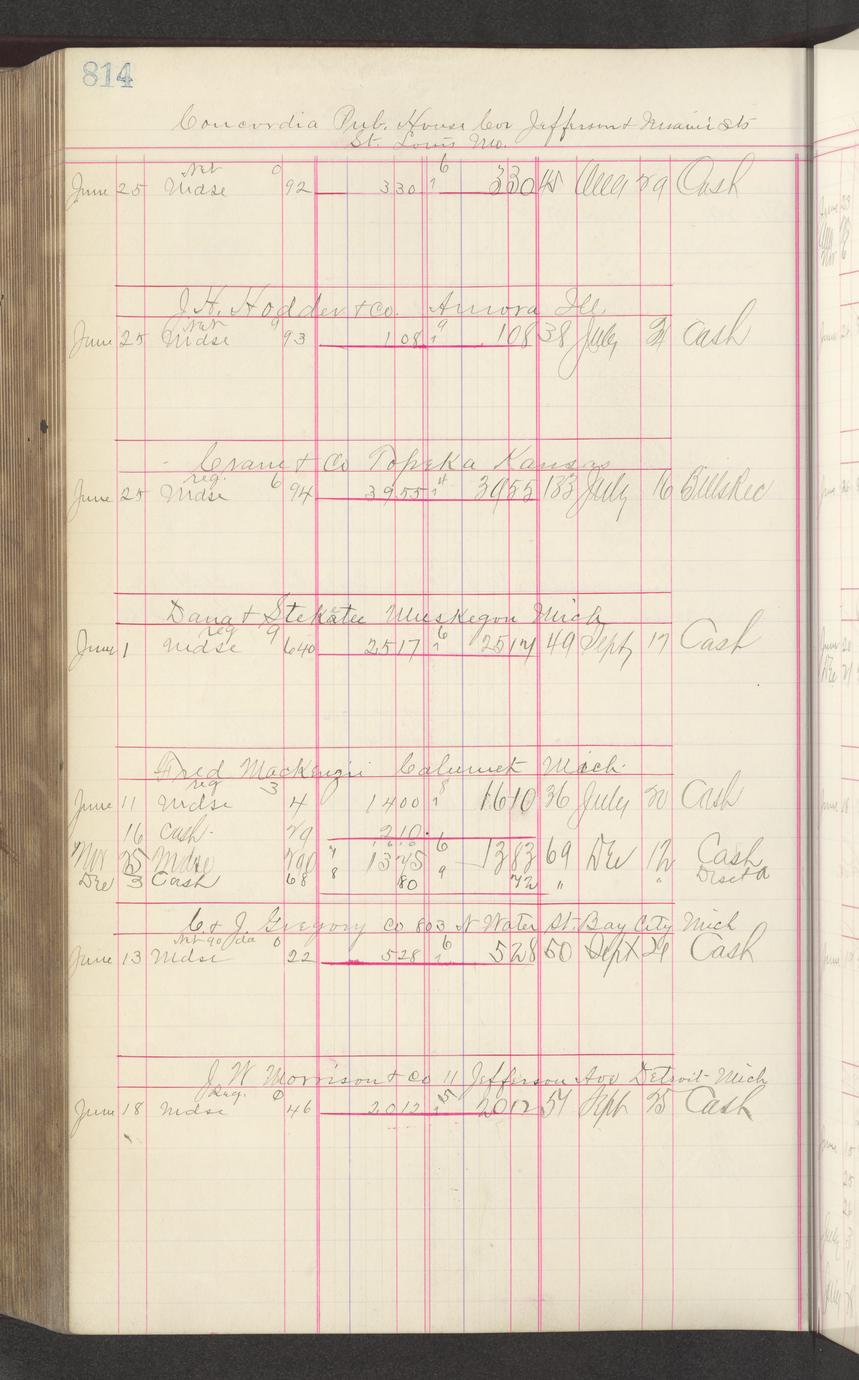 814
Concordia Pub. House Cor Jefferson & Miami Sts
St. Louis Mo.
Net 0 6
June 25 Mdse 92 330 1 330 45 Aug 29 Cash
J. H. Hodder & Co. Aurora Ill.
Net 9 9
June 25 Mdse 93 108 1 108 38 July 31 Cash
Crane & Co Topeka Kansas
reg. 6 4
June 25 Mdse 94 3955 1 3955 133 July 16 Bills Rec
Dana & Stekatee Muskegon Mich
reg 9 6
June 1 Mdse 640 2517 1 2517 49 Sept 17 Cash
Fred MacKenzie Calumet Mich.
reg 3 8
June 11 Mdse 4 1400 1 1610 36 July 20 Cash
16 Cash. 29 210
1610
Nov 25 Mdse 290 7 1375 6 1383 69 Dec 12 Cash
Dec 3 Cash 68 8 80 9 72 " " Disct
C. & J. Gregory Co 803 N Water St. Bay City Mich
Net 90 da 0 6
June 13 Mdse 22 528 1 528 50 Sept 24 Cash
J. W. Morrison & Co 11 Jefferson Ave Detroit Mich
Reg. 0 5
June 18 Mdse 46 2012 1 2012 51 Sept 25 Cash